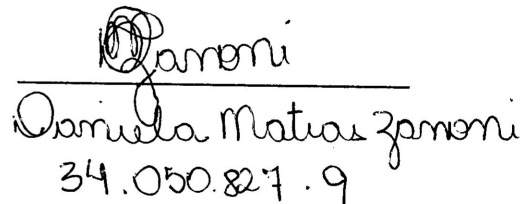 Zanoni
Daniela Matias Zanoni
34.050.827.9